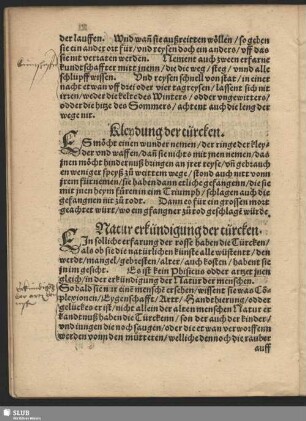 der lauffen. Vnd wañ sie außreitten wöllen / so geben
sie ein ander ort für / vnd reysen doch ein anders / vff das
sie nit verraten werden. Nement auch zween erfarne
kundtschaffter mitt jnenn / die die weg / steg / vnnd alle
schlupff wissen. Vnd reysen schnell von stat / in einer
nacht etwan vff drei oder vier tagreysen / lassent sich nit
irren / weder die kelte des Winters / odder vngewitters /
odder die hitze des Sommers / achtent auch die leng der
wege nit.
Kleydung der türcken.
ES möcht einen wunder nemen / der ringe der kley-
der vnd waffen / daß sie nichts mit jnen nemen / das
jnen möcht hindernuß bungen an jrer reyß / vñ gebrauch
en weniger speyß zů weittem wege / stond auch nitt vonn
jrem fürnemen / sie haben dann etliche gefangenn / die sie
mit jnen heym fürenn ein Triumph / schlagen auch die
gefangnen nit zů rodt. Dann es für ein grossen mort
geachtet würt / wo ein gfangner zů rod geschlagẽ würde.
Natur erkündigung der türcken.
IN sollicher erfarung der rosse haben die Türcken /
als ob sie die natürlichen künst alle wüstent / den
werde / mangel / gebresten / alter / auch kosten / habent sie
jn im gesicht. Es ist kein Phisicus odder artzet jnen
gleich / in der erkündigung der Natur der menschen.
So bald sie n ir eins mensche ersehen / wissent sie was Cõ-
plexionen / Eygenschafft / Artt / Handthierung / odder
gelückes er ist / nicht allein der alten menschen Natur er
kandtnuß haben die Türckenn / son der auch der kinder /
vnd iungen die noch saugen / oder die etwan verworffenn
werden vonn den müttreren / welliche dennoch die rauber
auff
SLUB